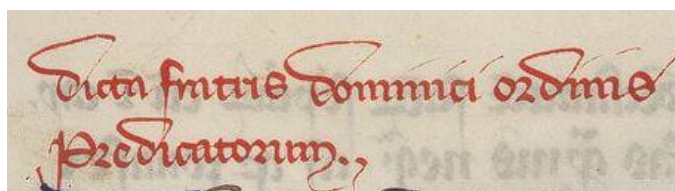 dicta fratris dominici ordinis
predicatorum.,